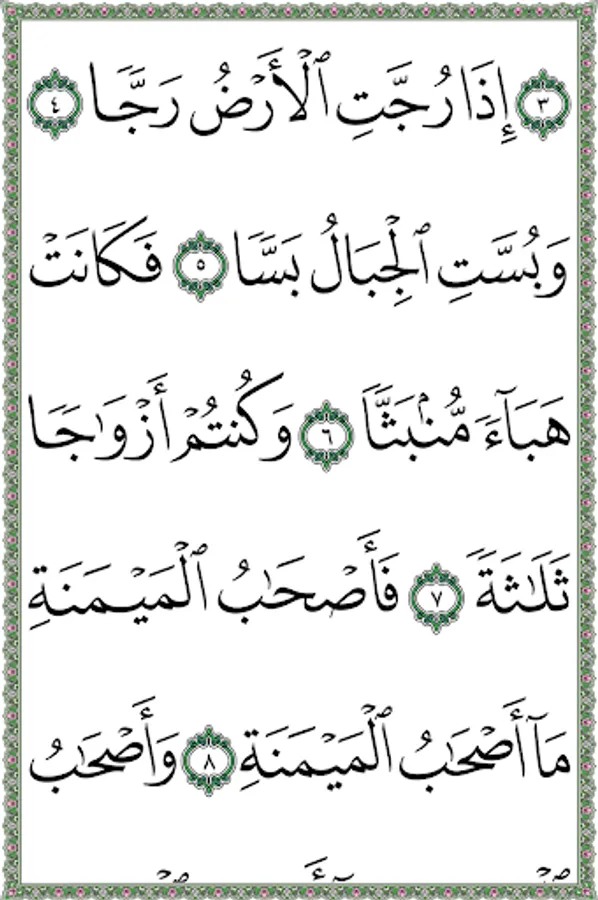 ٣ إِذَا رُجَّتِ ٱلۡأَرۡضُ رَجّٗا ٤
وَبُسَّتِ ٱلۡجِبَالُ بَسّٗا ٥ فَكَانَتۡ
هَبَآءٗ مُّنۢبَثّٗا ٦ وَكُنتُمۡ أَزۡوَٰجٗا
ثَلَٰثَةٗ ٧ فَأَصۡحَٰبُ ٱلۡمَيۡمَنَةِ
مَآ أَصۡحَٰبُ ٱلۡمَيۡمَنَةِ ٨ وَأَصۡحَٰبُ